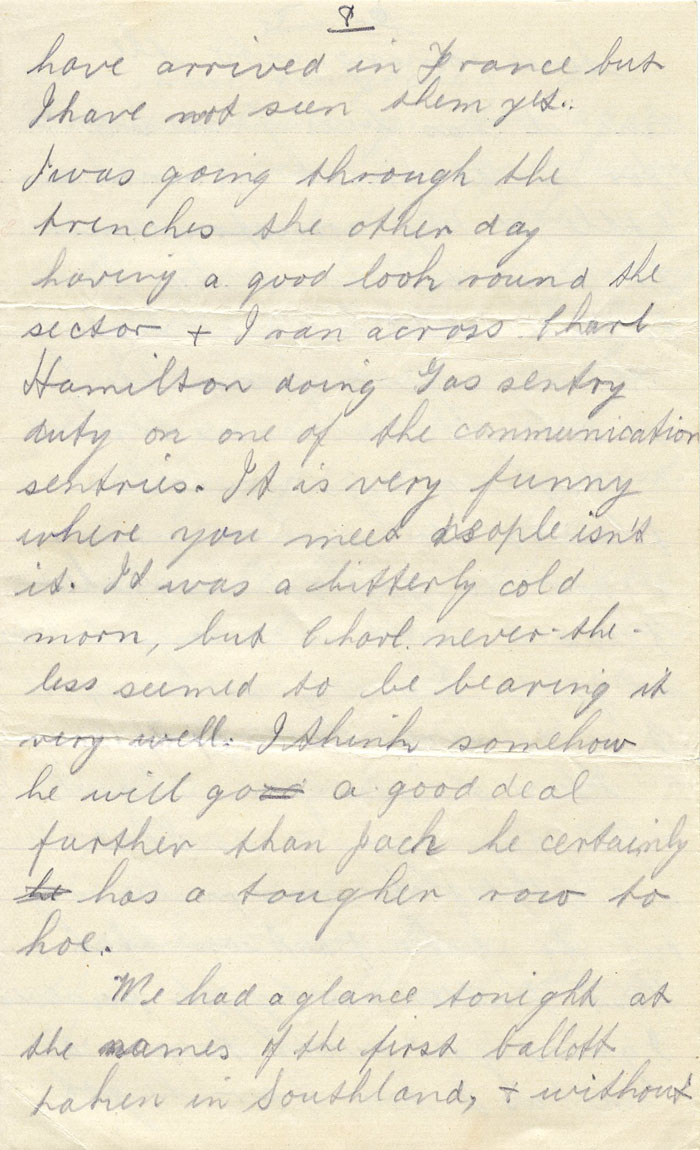 8
have arrived in France but
I have not seen them yet..
I was going through the
trenches the other day
having a good look round the
sector + I ran across Charl
Hamilton doing Gas sentry
duty on one of the communication
sentries. It is very funny
where you meet people isn't
it. It was a bitterly cold
morn, but Charl. never-the-
less seemed to be bearing it
very well. I think somehow
he will go a good deal
further than Jack he certainly
he has a tougher row to
hoe.
We had a glance tonight at
the names of the first ballott
taken in Southland, + without